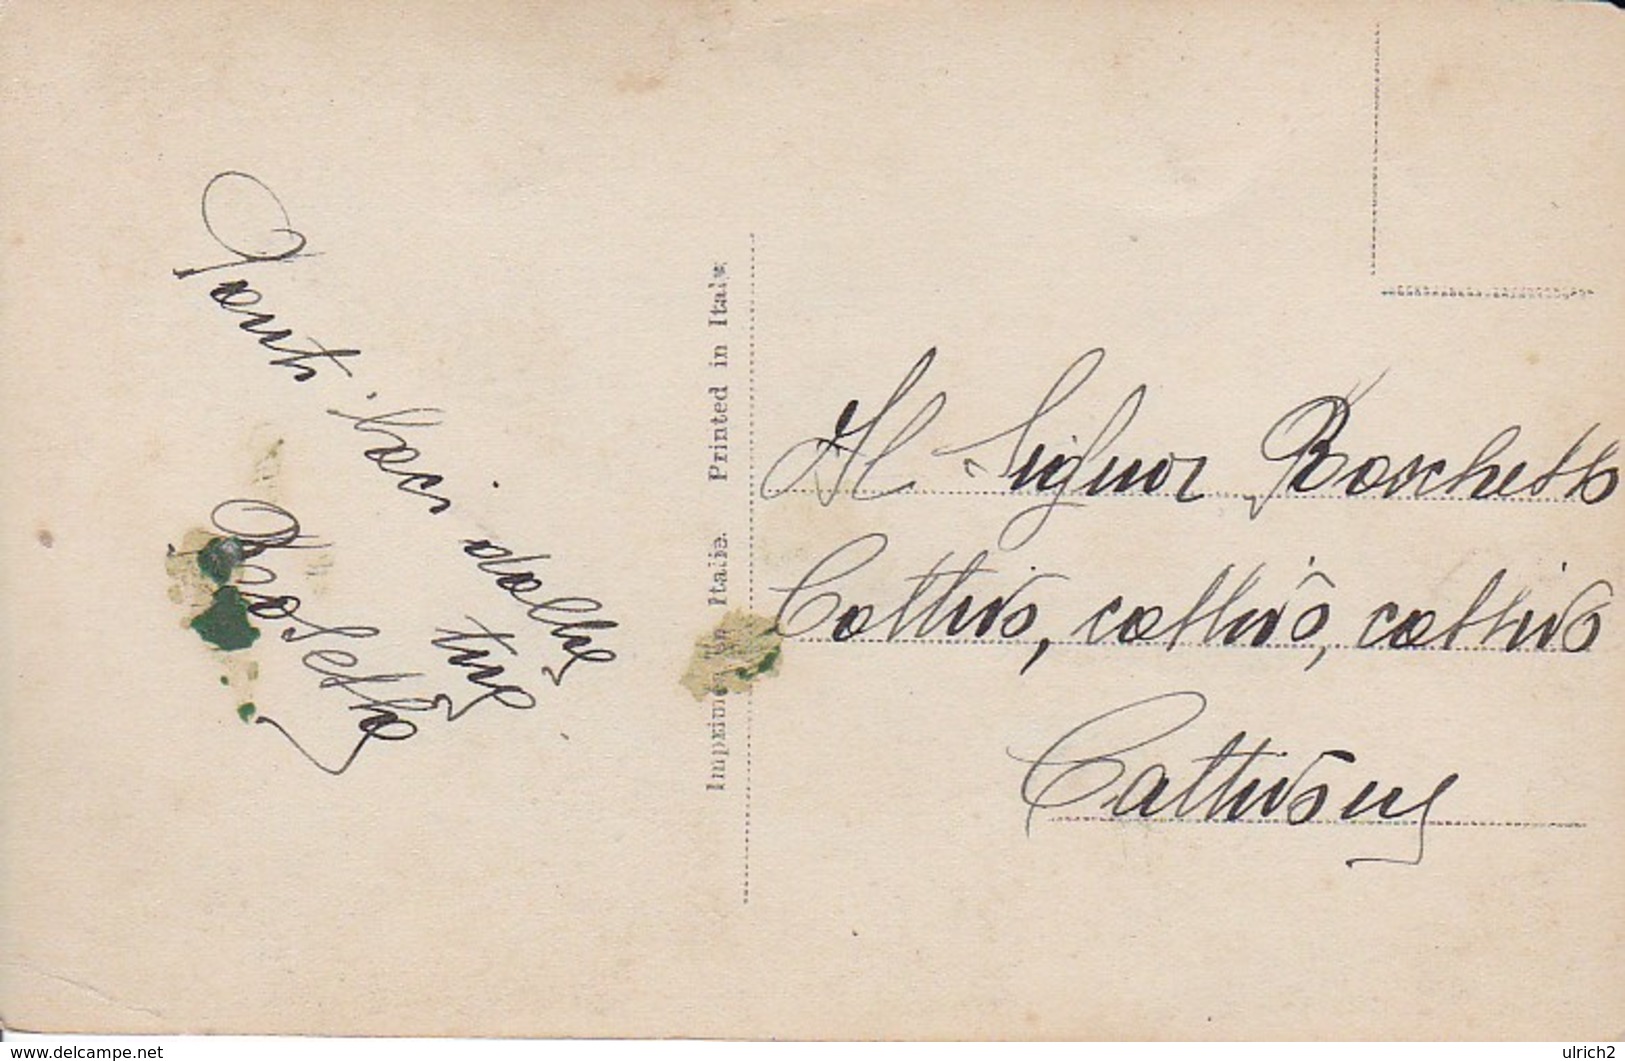 Tanti baci dalla
tua
Rosetta
Imprimé en Italie. Printed in Italy
Al Signor Boschetto
Cattivo, cattivo, cattivo
Cattivone
www.delcampe.net
ulrich2